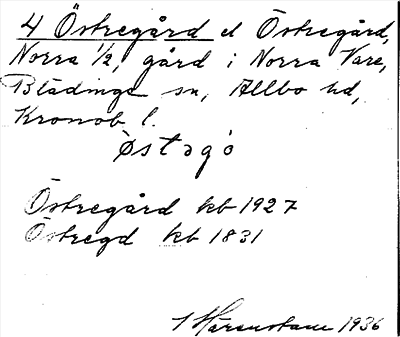 4 Östregård el Östregård,
Norra 1/2, gård i Norra Vare,
Blädinge sn, Allbo hd,
Kronob l.
Østəgo
Östregård kb 1927
Östregd kb 1831
1936